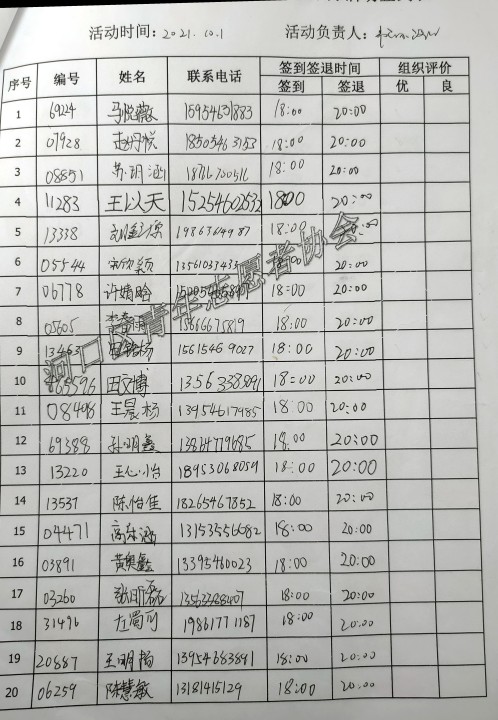 活动时间: 2021.10.1 活动负责人:
序号 编号 姓名 联系电话 签到签退时间 组织评价
签到 签退 优 良
1 6924 马悦薇 15954631883 18:00 20:00
2 07928 18505463153 18:00 20:00
3 08851 苏玥涵 18:00 20:00
4 11283 王以天 15254602532 1800 20:00
5 13338 18:00 20:00
6 05544 20:00
7 06778 许婧晗 18:00 20:00
8 05605 15666675819 18:00 20:00
9 13463 15615469027 18:00 20:00
10 田文博 18:00 20:00
11 08408 王晨杨 13954617985 18:00 20:00
12 69388 孙明鑫 18:00 20:00
13 13220 王心怡 18953068059 18:00 20:00
14 13537 陈怡佳 18265467852 18:00 20:00
15 04471 高东涵 13153556682 18:00 20:00
16 03891 黄奥鑫 13395460023 18:00 20:00
17 03260 18:00 20:00
18 31496 左蜀可 19861771187 18:00 20:00
19 20887 王明楠 13954683891 18:00 20:00
20 06259 陈慧敏 13181415129 18:00 20:00
河口区青年志愿者协会